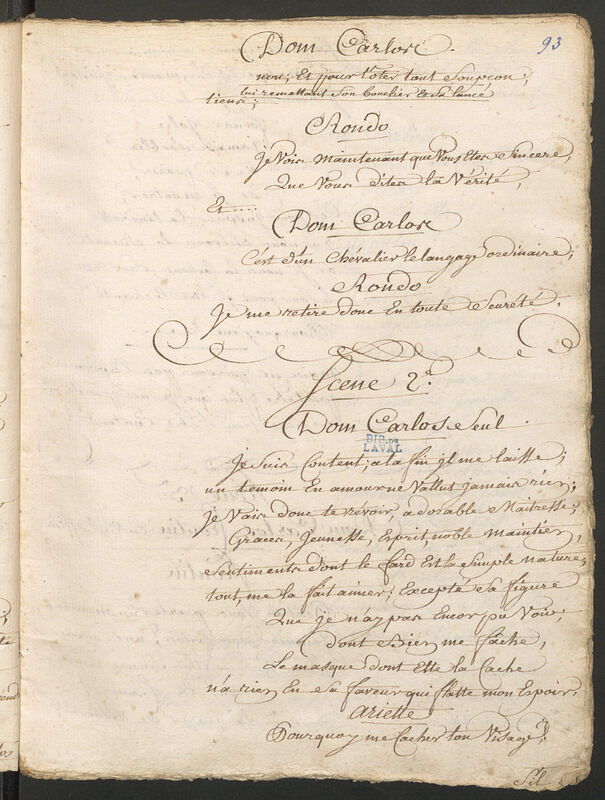 93
Dom Carlos.
non; Et pour t'oter tout Soupçon;
lui remettant Son bouclier Et Sa lance
tiens;
Rondo
Je Vois maintenant que Vous Etes Sincere,
Que Vous dites la Vérité,
Et.....
Dom Carlos
C'est d'un Chévalier le langage ordinaire;
Rondo
Je me retire donc En toute Seureté.
Scene 2.e
Dom Carlos Seul.
BIB. DE
LAVAL
Je Suis Content; a la fin il me laisse;
un temoin En amour ne Vallut jamais rien;
Je Vais donc te revoir, adorable Maitresse,
Graces, Jeunesse, Esprit, noble maintien,
Sentiments dont le fard Est la Simple nature,
tout me la fait aimer; Excepté Sa figure
Que je n'ay pas Encor pu Voir;
dont Bien me fâche,
Le masque dont Elle la Cache
n'a rien En Sa faveur qui flatte mon Espoir.
Ariette
Pourquoy me Cacher ton Visage?